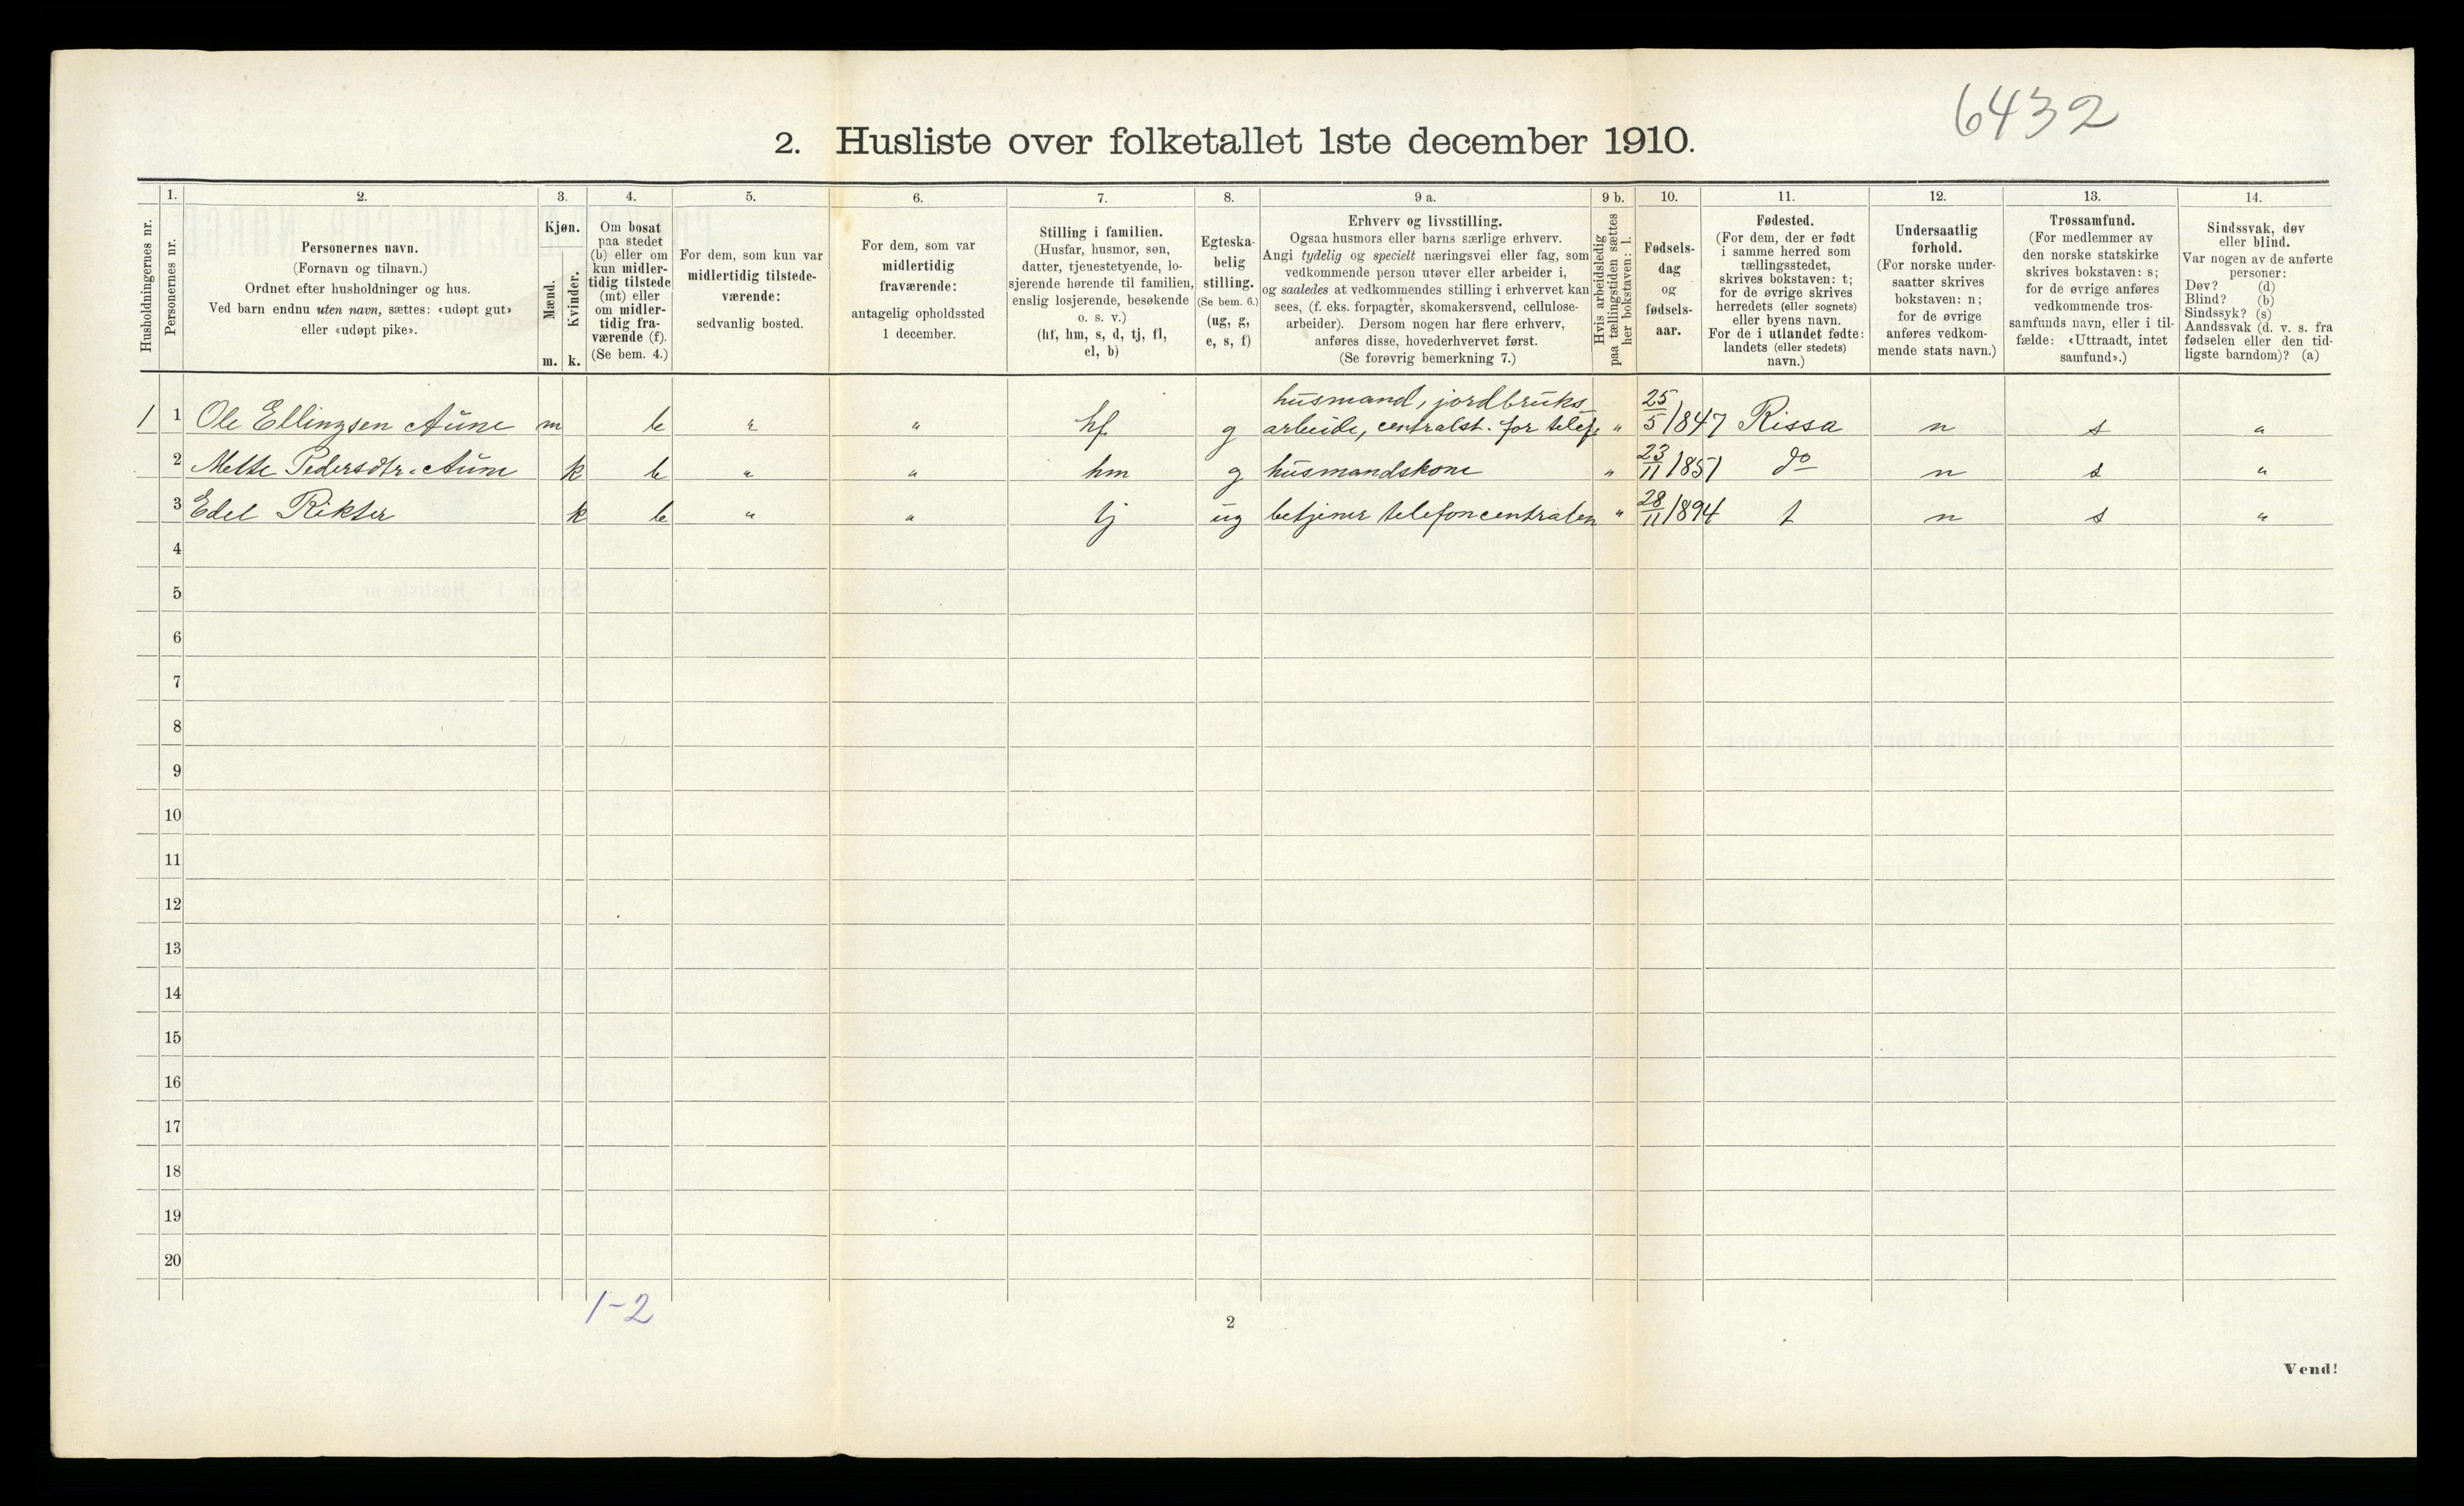 6432
2. Husliste over folketallet 1ste december 1910.
Husholdningernes nr.
1.
Personernes nr.
2.
Personernes navn.
(Fornavn og tilnavn.)
Ordnet efter husholdninger og hus.
Ved barn endnu uten navn, sættes: «udøpt gut»
eller «udøpt pike».
3.
Kjøn.
Mænd.
Kvinder.
m. k.
4.
Om bosat
paa stedet
(b) eller om
kun midler-
tidig tilstede
(mt) eller
om midler-
tidig fra-
værende (f).
(Se bem. 4.)
5.
For dem, som kun var
midlertidig tilstede-
værende:
sedvanlig bosted.
6.
For dem, som var
midlertidig
fraværende:
antagelig opholdssted
1 december.
7.
Stilling i familien.
(Husfar, husmor, søn,
datter, tjenestetyende, lo-
sjerende hørende til familien,
enslig losjerende, besøkende
o. s. v.)
(hf, hm, s, d, tj, fl,
el, b)
8.
Egteska-
belig
stilling.
(Se bem. 6.)
(ug, g,
e, s, f)
9 a.
Erhverv og livsstilling.
Ogsaa husmors eller barns særlige erhverv.
Angi tydelig og specielt næringsvei eller fag, som
vedkommende person utøver eller arbeider i,
og saaledes at vedkommendes stilling i erhvervet kan
sees, (f. eks. forpagter, skomakersvend, cellulose-
arbeider). Dersom nogen har flere erhverv,
anføres disse, hovederhvervet først.
(Se forøvrig bemerkning 7.)
9 b.
Hvis arbeidsledig
paa tællingstiden sættes
her bokstaven: l.
10.
Fødsels-
dag
og
fødsels-
aar.
11.
Fødested.
(For dem, der er født
i samme herred som
tællingsstedet,
skrives bokstaven: t;
for de øvrige skrives
herredets (eller sognets)
eller byens navn.
For de i utlandet fødte:
landets (eller stedets)
navn.)
12.
Undersaatlig
forhold.
(For norske under-
saatter skrives
bokstaven: n;
for de øvrige
anføres vedkom-
mende stats navn.)
13.
Trossamfund.
(For medlemmer av
den norske statskirke
skrives bokstaven: s;
for de øvrige anføres
vedkommende tros-
samfunds navn, eller i til-
fælde: «Uttraadt, intet
samfund».)
14.
Sindssvak, døv
eller blind.
Var nogen av de anførte
personer:
Døv? (d)
Blind? (b)
Sindssyk? (s)
Aandssvak (d. v. s. fra
fødselen eller den tid-
ligste barndom)? (a)
husmand, jordbruks
1 1 Ole Ellingsen Aune m b " " hf g arbeide, centralst. for telef. " 25/5 1847 Rissa n s "
2 Mette Pedersdtr. Aune k b " " hm g husmandskone " 23/11 1851 do n s "
3 Edel Rikter k b " " tj ug betjener telefoncentralen " 28/11 1894 t n s "
4
5
6
7
8
9
10
11
12
13
14
15
16
17
18
19
20
1-2
2
Vend!